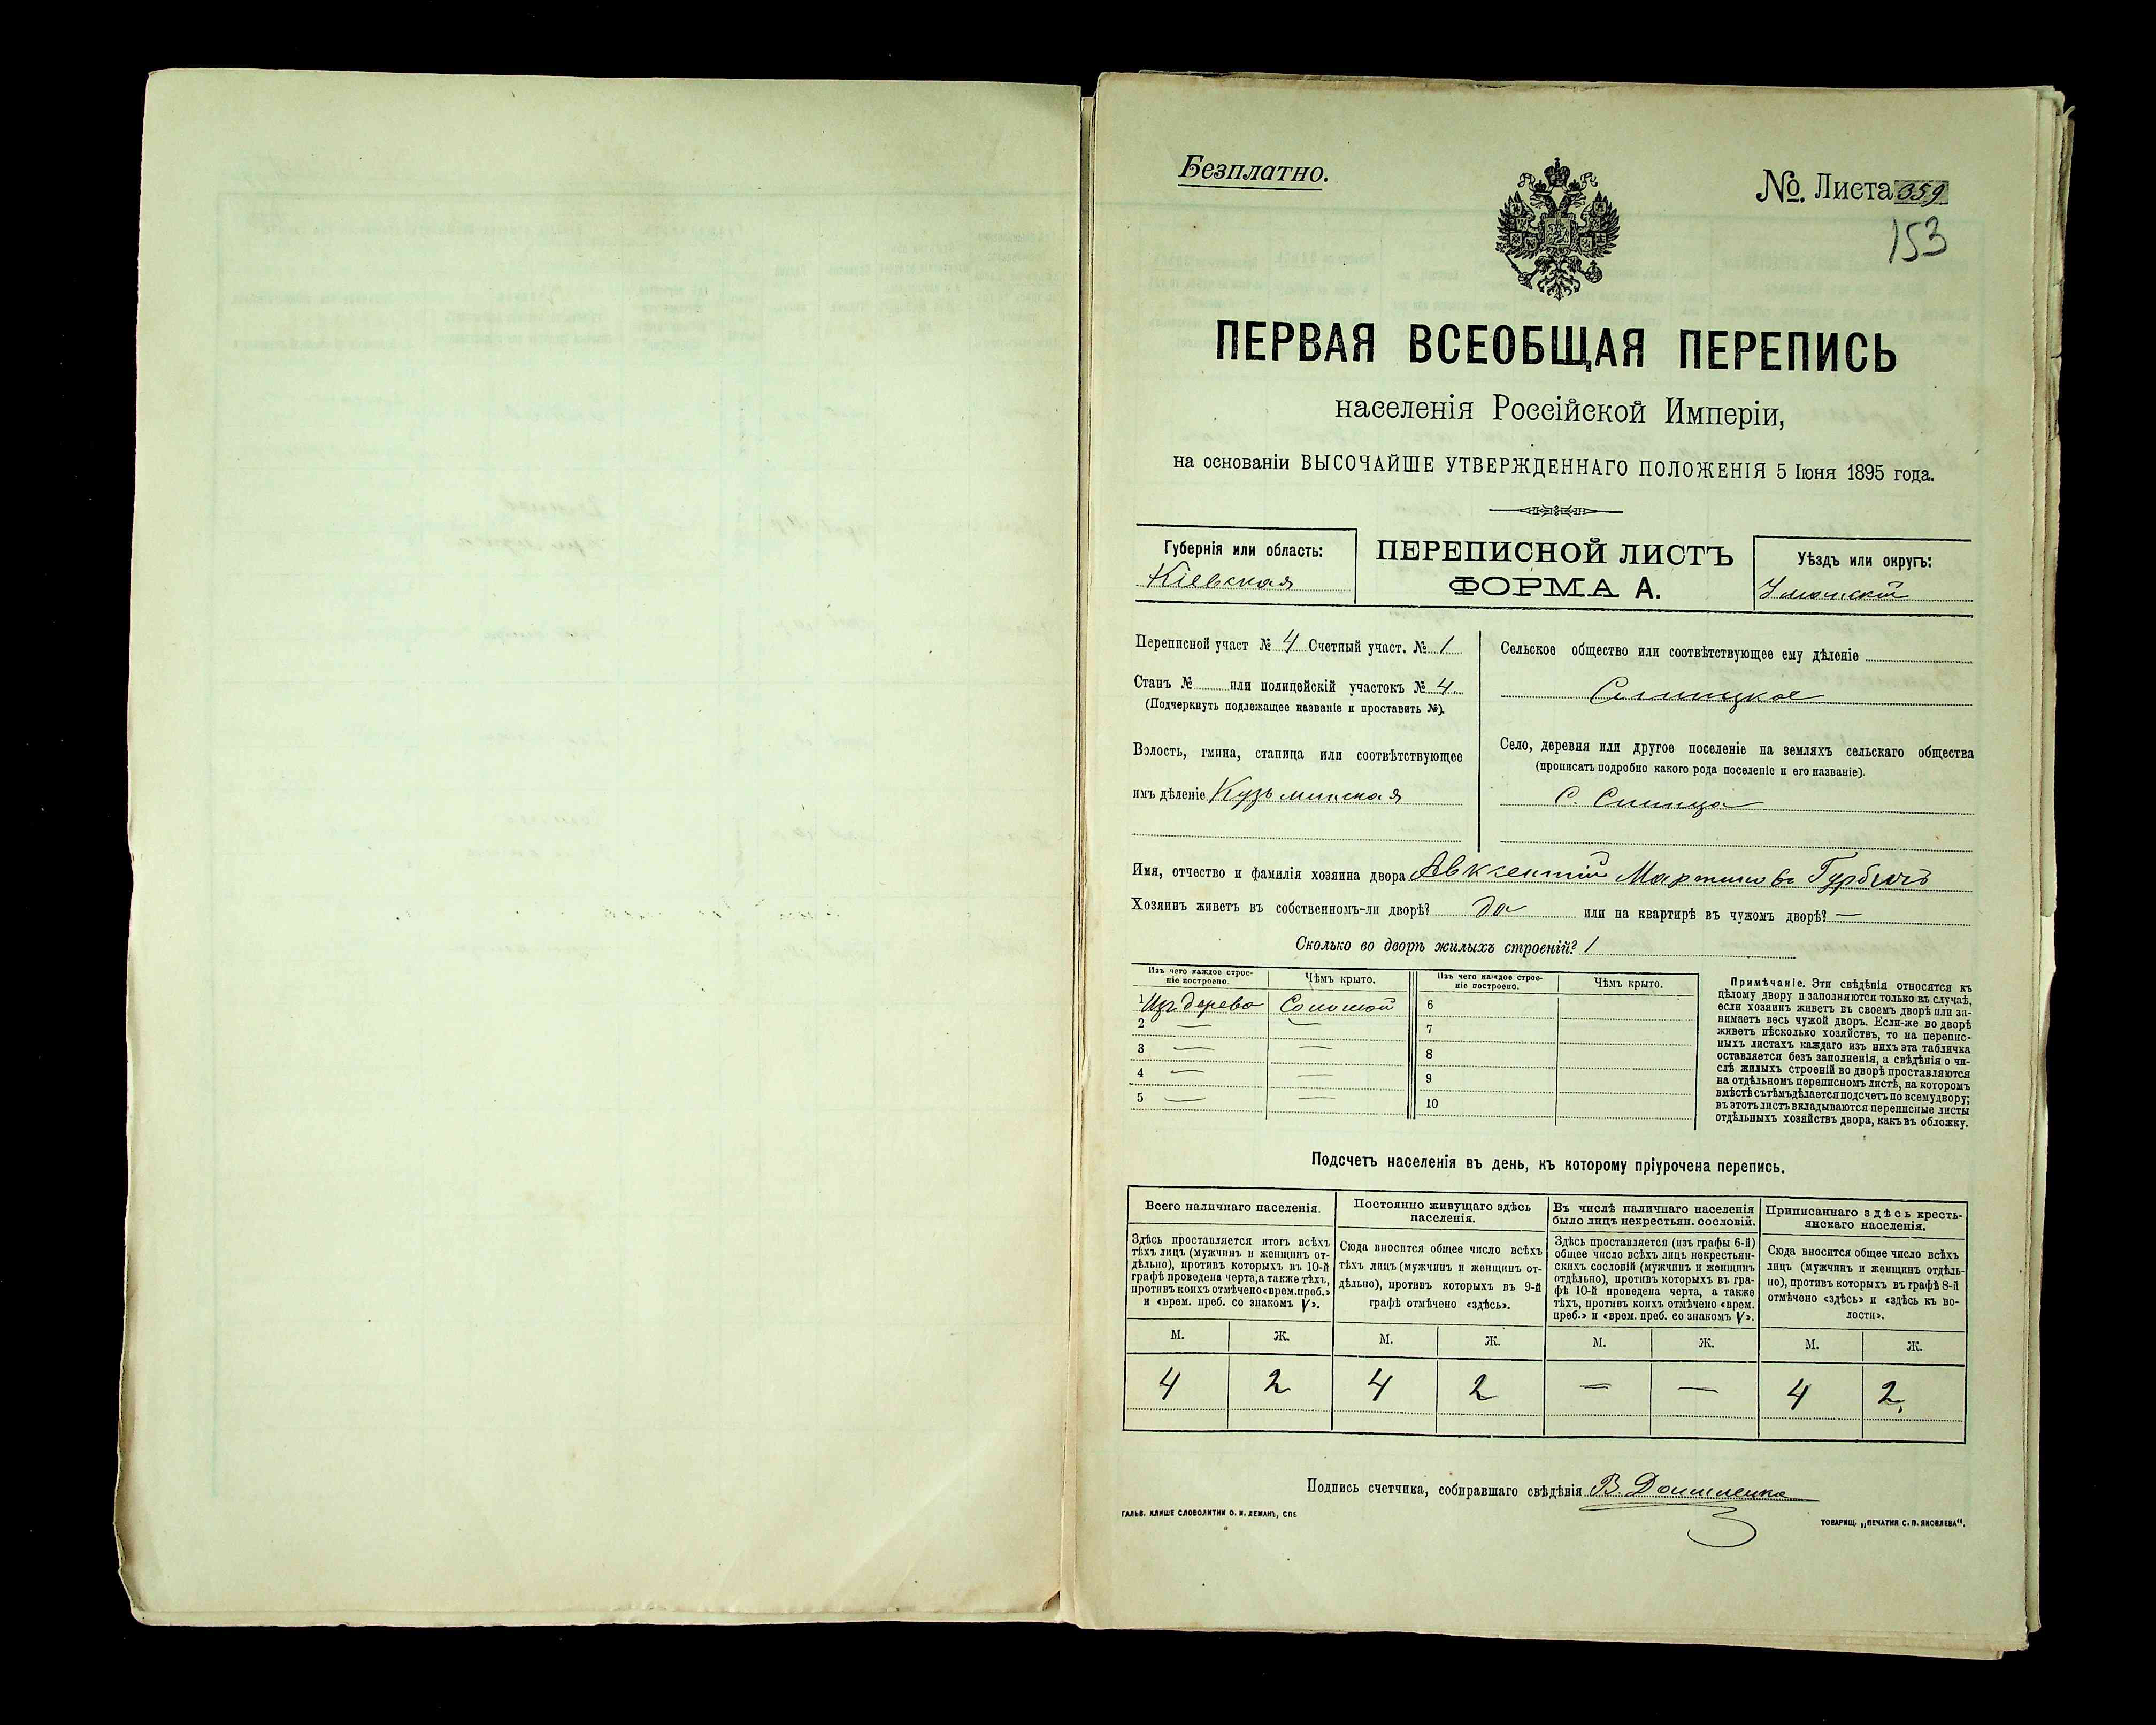 Безплатно.
№. Листа 359
153
ПЕРВАЯ ВСЕОБЩАЯ ПЕРЕПИСЬ
населенія Россійской Имперіи,
на основаніи ВЫСОЧАЙШЕ УТВЕРЖДЕННАГО ПОЛОЖЕНІЯ 5 Іюня 1895 года.
Губернія или область:
Кіевская
ПЕРЕПИСНОЙ ЛИСТЪ
ФОРМА А.
Уѣздъ или округъ:
Уманскій
Переписной участ № 4 Счетный участ. № 1
Станъ № или полицейскій участокъ № 4
(Подчеркнуть подлежащее названіе и проставить №).
Волость, гмина, станица или соотвѣтствующее
имъ дѣленіе Кузьминская
Сельское общество или соотвѣтствующее ему дѣленіе
Синицкое
Село, деревня или другое поселеніе на земляхъ сельскаго общества
(прописать подробно какого рода поселеніе и его названіе).
С. Синица
Имя, отчество и фамилія хозяина двора Авксентій Мартиновъ
Хозяинъ живетъ въ собственномъ-ли дворѣ? да или на квартирѣ въ чужомъ дворѣ? —
Сколько во дворѣ жилыхъ строеній? 1
Изъ чего каждое строе-
ніе построено.
Чѣмъ крыто.
Изъ чего каждое строе-
ніе построено.
Чѣмъ крыто.
1 Изъ дерева Соломой 6
2 — — 7
3 — — 8
4 — — 9
5 — — 10
Примѣчаніе. Эти свѣдѣнія относятся къ
цѣлому двору и заполняются только въ случаѣ,
если хозяинъ живетъ въ своемъ дворѣ или за-
нимаетъ весь чужой дворъ. Если-же во дворѣ
живетъ нѣсколько хозяйствъ, то на перепис-
ныхъ листахъ каждаго изъ нихъ эта табличка
оставляется безъ заполненія, а свѣдѣнія о чи-
слѣ жилыхъ строеній во дворѣ проставляются
на отдѣльномъ переписномъ листѣ, на которомъ
вмѣстѣ съ тѣмъ дѣлается подсчетъ по всему двору;
въ этотъ листъ вкладываются переписные листы
отдѣльныхъ хозяйствъ двора, какъ въ обложку.
Подсчетъ населенія въ день, къ которому пріурочена перепись.
Всего наличнаго населенія.
Здѣсь проставляется итогъ всѣхъ
тѣхъ лицъ (мужчинъ и женщинъ от-
дѣльно), противъ которыхъ въ 10-й
графѣ проведена черта, а также тѣхъ,
противъ коихъ отмѣчено «врем. преб.»
и «врем. преб. со знакомъ V».
Постоянно живущаго здѣсь
населенія.
Сюда вносится общее число всѣхъ
тѣхъ лицъ (мужчинъ и женщинъ от-
дѣльно), противъ которыхъ въ 9-й
графѣ отмѣчено «здѣсь».
Въ числѣ наличнаго населенія
было лицъ некрестьян. сословій.
Здѣсь проставляется (изъ графы 6-й)
общее число всѣхъ лицъ некрестьян-
скихъ сословій (мужчинъ и женщинъ
отдѣльно), противъ которыхъ въ гра-
фѣ 10-й проведена черта, а также
тѣхъ, противъ коихъ отмѣчено «врем.
преб.» и «врем. преб. со знакомъ V».
Приписаннаго здѣсь кресть-
янскаго населенія.
Сюда вносится общее число всѣхъ
лицъ (мужчинъ и женщинъ отдѣль-
но), противъ которыхъ въ графѣ 8-й
отмѣчено «здѣсь» и «здѣсь къ во-
лости».
М. Ж. М. Ж. М. Ж. М. Ж.
4 2 4 2 — — 4 2
Подпись счетчика, собиравшаго свѣдѣнія В.
ГАЛЬВ. КЛИШЕ СЛОВОЛИТНИ О. И. ЛЕМАНЪ, СПБ
ТОВАРИЩ. „ПЕЧАТНЯ С. П. ЯКОВЛЕВА“.